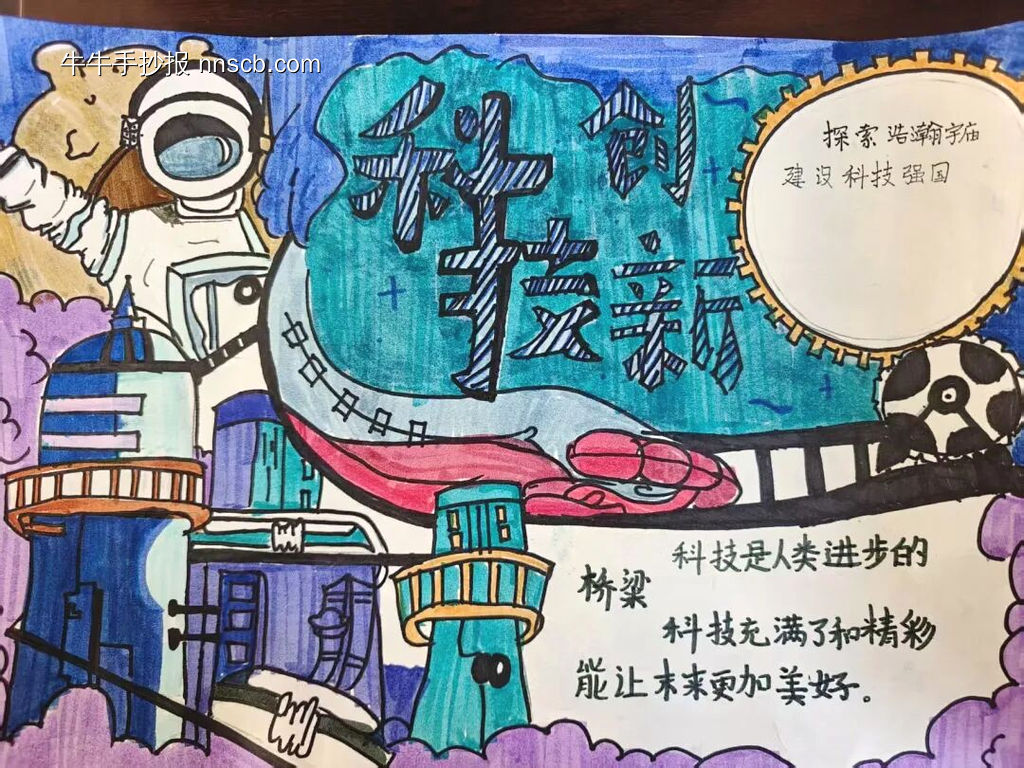 牛牛手抄报 nnscb.com
科技
创新
探索浩瀚宇庙
建设科技强国
科技是人类进步的
桥梁
科技充满了和精彩
能让未来更加美好。